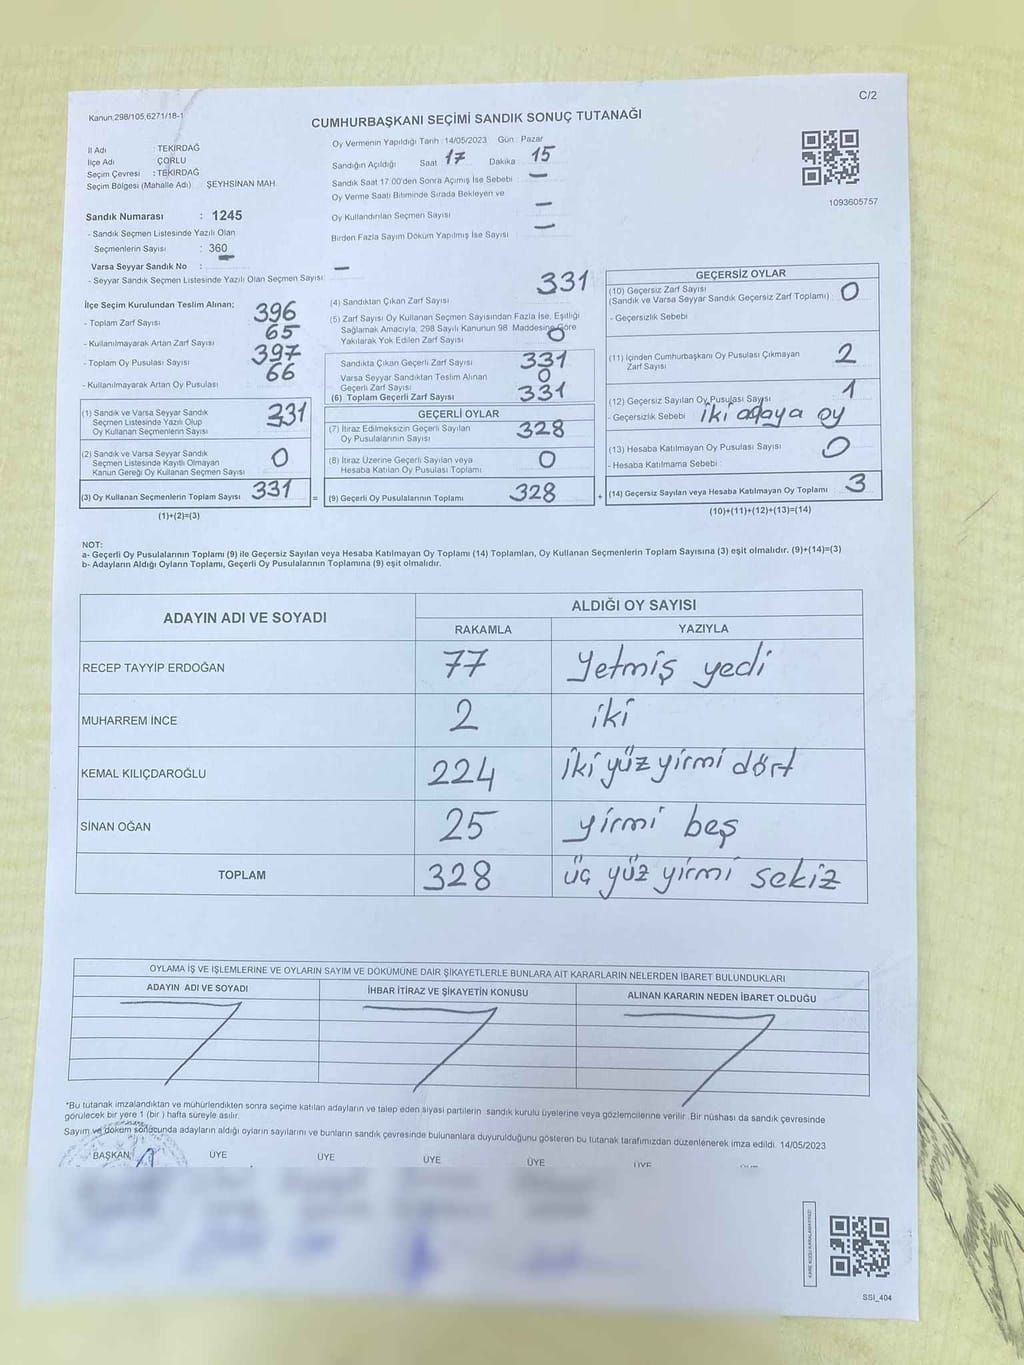 C/2
Kanun 298/105,6271/18-1
CUMHURBAŞKANI SEÇİMİ SANDIK SONUÇ TUTANAĞI
İl Adı : TEKİRDAĞ
İlçe Adı : ÇORLU
Seçim Çevresi : TEKİRDAĞ
Seçim Bölgesi (Mahalle Adı) : ŞEYHSİNAN MAH
Sandık Numarası : 1245
- Sandık Seçmen Listesinde Yazılı Olan
Seçmenlerin Sayısı : 360
Varsa Seyyar Sandık No :
- Seyyar Sandık Seçmen Listesinde Yazılı Olan Seçmen Sayısı: —
Oy Vermenin Yapıldığı Tarih : 14/05/2023 Gün : Pazar
Sandığın Açıldığı Saat 17 Dakika 15
Sandık Saat 17 00'den Sonra Açımış İse Sebebi —
Oy Verme Saati Bitiminde Sırada Bekleyen ve
Oy Kullandırılan Seçmen Sayısı —
Birden Fazla Sayım Döküm Yapılmış İse Sayısı —
1093605757
İlçe Seçim Kurulundan Teslim Alınan;
- Toplam Zarf Sayısı 396
- Kullanılmayarak Artan Zarf Sayısı 65
- Toplam Oy Pusulası Sayısı 397
- Kullanılmayarak Artan Oy Pusulası 66
(1) Sandık ve Varsa Seyyar Sandık
Seçmen Listesinde Yazılı Olup
Oy Kullanan Seçmenlerin Sayısı 331
(2) Sandık ve Varsa Seyyar Sandık
Seçmen Listesinde Kayıtlı Olmayan
Kanun Gereği Oy Kullanan Seçmen Sayısı 0
(3) Oy Kullanan Seçmenlerin Toplam Sayısı 331
(1)+(2)=(3)
(4) Sandıktan Çıkan Zarf Sayısı 331
(5) Zarf Sayısı Oy Kullanan Seçmen Sayısından Fazla İse, Eşitliği
Sağlamak Amacıyla, 298 Sayılı Kanunun 98. Maddesine Göre
Yakılarak Yok Edilen Zarf Sayısı 0
Sandıkta Çıkan Geçerli Zarf Sayısı 331
Varsa Seyyar Sandıktan Teslim Alınan
Geçerli Zarf Sayısı 0
(6) Toplam Geçerli Zarf Sayısı 331
GEÇERLİ OYLAR
(7) İtiraz Edilmeksizin Geçerli Sayılan
Oy Pusulalarının Sayısı 328
(8) İtiraz Üzerine Geçerli Sayılan veya
Hesaba Katılan Oy Pusulası Toplamı 0
= (9) Geçerli Oy Pusulalarının Toplamı 328
GEÇERSİZ OYLAR
(10) Geçersiz Zarf Sayısı
(Sandık ve Varsa Seyyar Sandık Geçersiz Zarf Toplamı) 0
- Geçersizlik Sebebi
(11) İçinden Cumhurbaşkanı Oy Pusulası Çıkmayan
Zarf Sayısı 2
(12) Geçersiz Sayılan Oy Pusulası Sayısı 1
- Geçersizlik Sebebi iki adaya oy
(13) Hesaba Katılmayan Oy Pusulası Sayısı 0
- Hesaba Katılmama Sebebi
+ (14) Geçersiz Sayılan veya Hesaba Katılmayan Oy Toplamı 3
(10)+(11)+(12)+(13)=(14)
NOT:
a- Geçerli Oy Pusulalarının Toplamı (9) ile Geçersiz Sayılan veya Hesaba Katılmayan Oy Toplamı (14) Toplamları, Oy Kullanan Seçmenlerin Toplam Sayısına (3) eşit olmalıdır. (9)+(14)=(3)
b- Adayların Aldığı Oyların Toplamı, Geçerli Oy Pusulalarının Toplamına (9) eşit olmalıdır.
ADAYIN ADI VE SOYADI ALDIĞI OY SAYISI
RAKAMLA YAZIYLA
RECEP TAYYİP ERDOĞAN 77 Yetmiş yedi
MUHARREM İNCE 2 iki
KEMAL KILIÇDAROĞLU 224 iki yüz yirmi dört
SİNAN OĞAN 25 yirmi beş
TOPLAM 328 üç yüz yirmi sekiz
OYLAMA İŞ VE İŞLEMLERİNE VE OYLARIN SAYIM VE DÖKÜMÜNE DAİR ŞİKAYETLERLE BUNLARA AİT KARARLARIN NELERDEN İBARET BULUNDUKLARI
ADAYIN ADI VE SOYADI İHBAR İTİRAZ VE ŞİKAYETİN KONUSU ALINAN KARARIN NEDEN İBARET OLDUĞU
*Bu tutanak imzalandıktan ve mühürlendikten sonra seçime katılan adayların ve talep eden siyasi partilerin sandık kurulu üyelerine veya gözlemcilerine verilir. Bir nüshası da sandık çevresinde
görülecek bir yere 1 (bir ) hafta süreyle asılır.
Sayım ve döküm sonucunda adayların aldığı oyların sayılarını ve bunların sandık çevresinde bulunanlara duyurulduğunu gösteren bu tutanak tarafımızdan düzenlenerek imza edildi. 14/05/2023
BAŞKAN ÜYE ÜYE ÜYE ÜYE ÜYE
SSİ_404